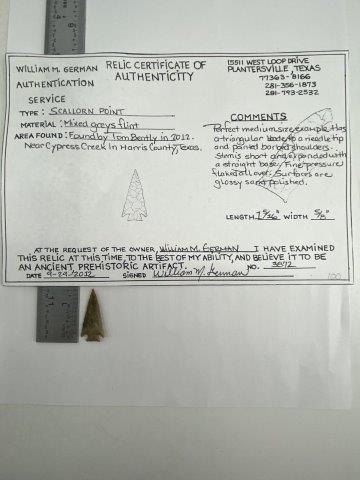 WILLIAM M. GERMAN
AUTHENTICATION
SERVICE
RELIC CERTIFICATE OF
AUTHENTICITY
15511 WEST LOOP DRIVE
PLANTERSVILLE, TEXAS
77363-8166
281-356-1873
281-793-2532
TYPE: SCALLORN POINT
MATERIAL: Mixed greys flint
AREA FOUND: Found by Tom Bently in 2012.
Near Cypress Creek In Harris County, Texas.
COMMENTS
Perfect medium size example. Has
a triangular blade to a needle tip
and pointed barbed shoulders.
Stem is short and expanded with
a straight base. Fine pressure
flaked all over. Surfaces are
glossy sand polished.
LENGTH WIDTH 5/8"
AT THE REQUEST OF THE OWNER, WILLIAM M. GERMAN I HAVE EXAMINED
THIS RELIC AT THIS TIME, TO THE BEST OF MY ABILITY, AND BELIEVE IT TO BE
AN ANCIENT, PREHISTORIC ARTIFACT. NO. 3672
DATE 9-29-2012 SIGNED William M. German
100